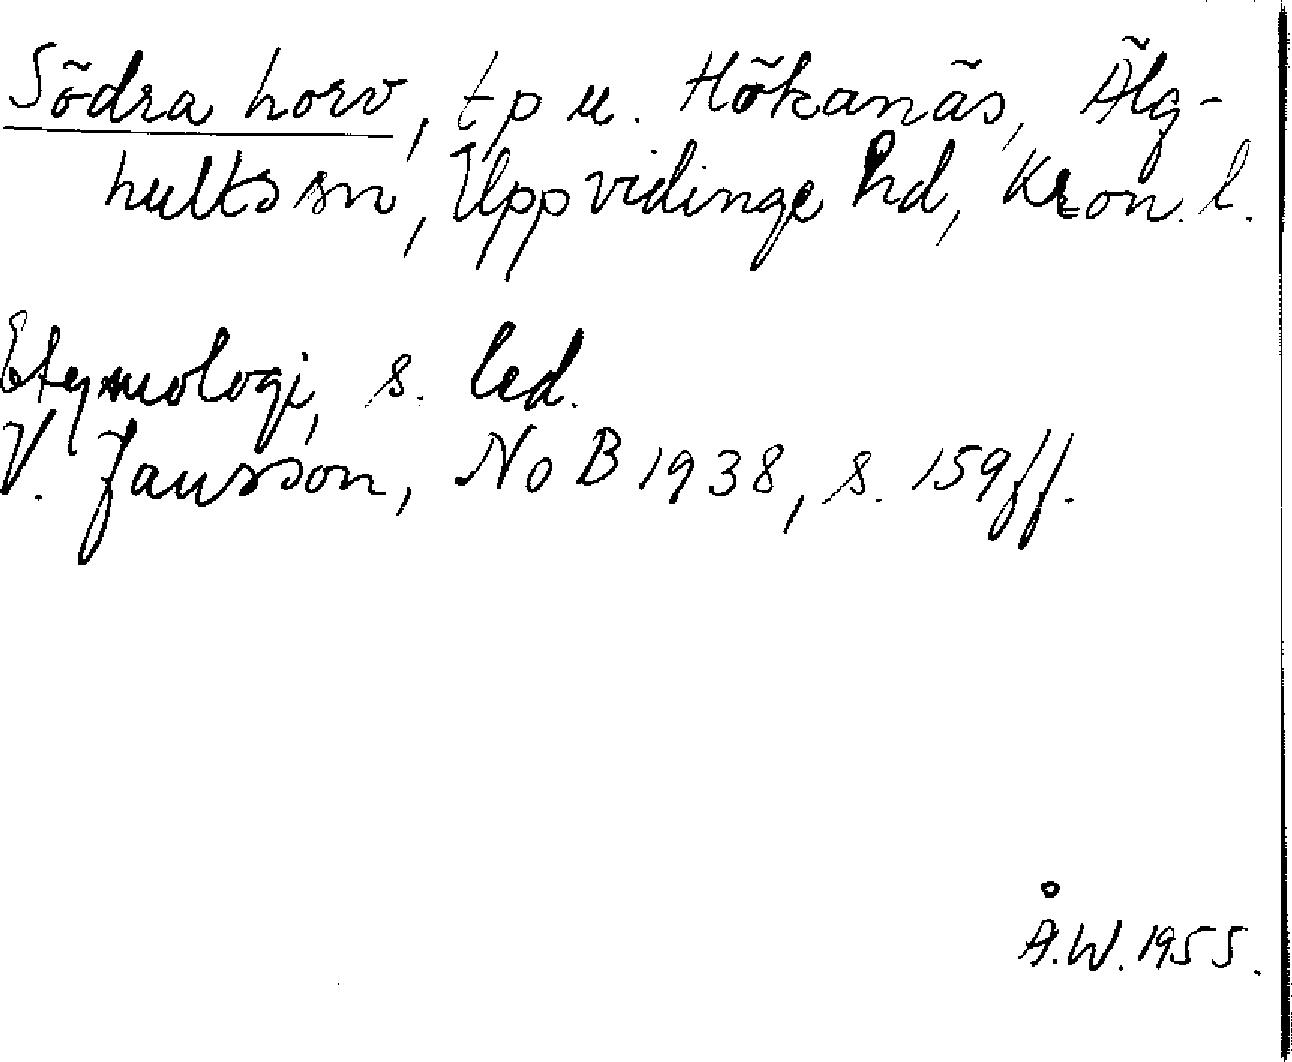 Södra horv, tp u. Hökanäs, Älg-
hults sn, Uppvidinge hd, Kron. l.
Etymologi, s. led.
V. Jansson, NoB 1938, s. 159 ff.
Å.W. 1955.